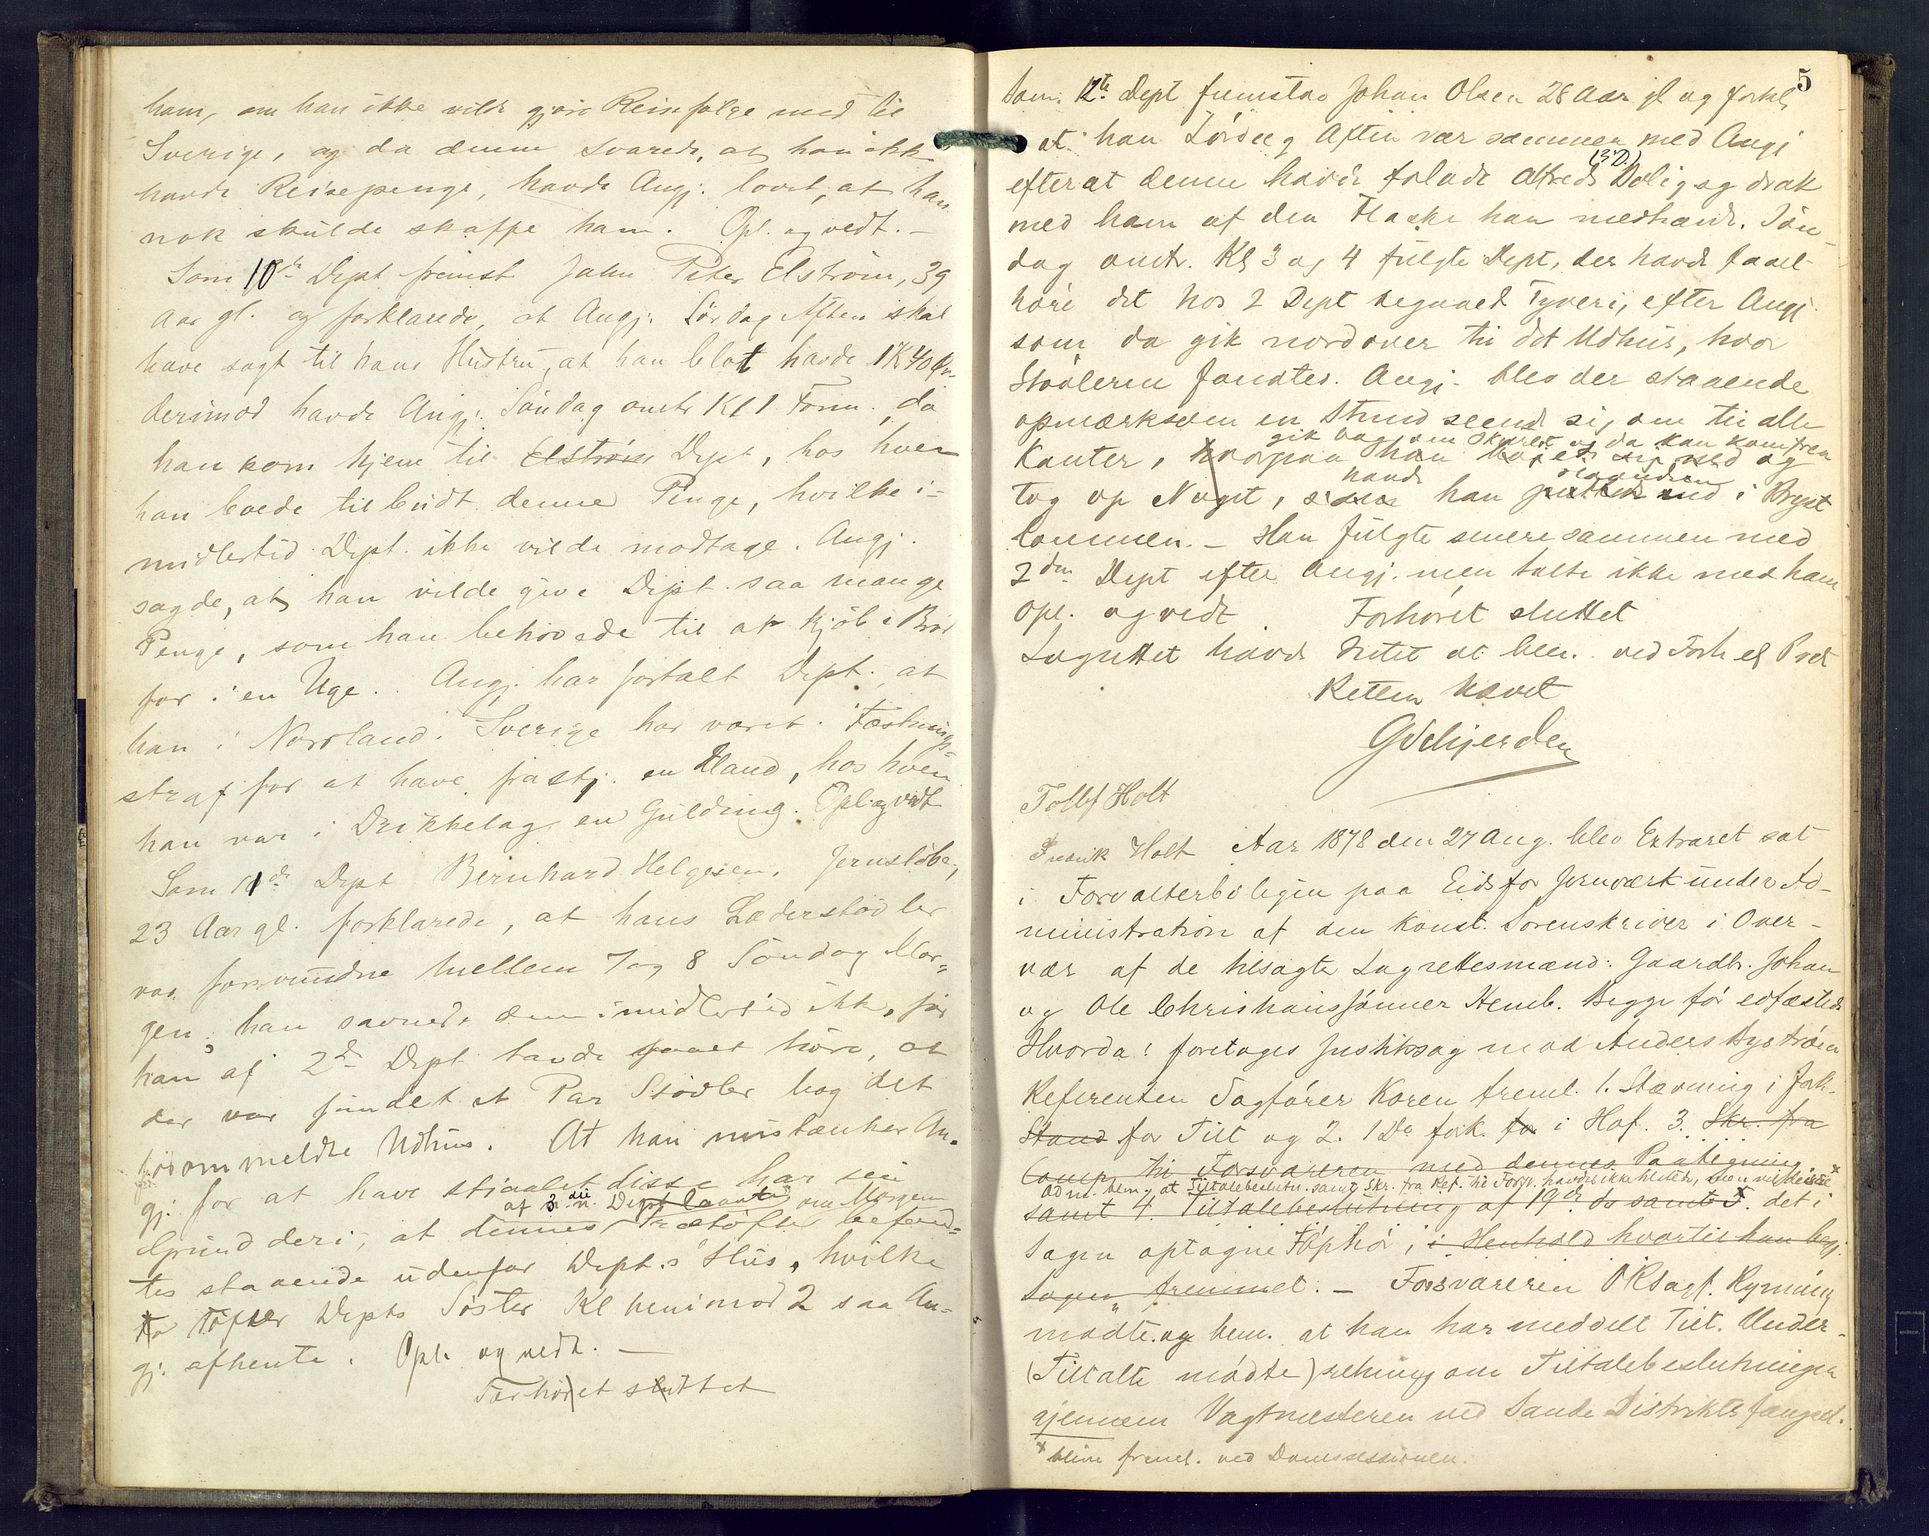 ham, om han ikke vilde gjøre Reisefølge med til
Sverige, og da denne svarede, at han ikke
havde Reisepenge, havde Angj. lovet, at han
nok skulde skaffe ham. Opl. og vedt. —
Som 10de Dept fremst John Peter Elstrøm, 39
Aar gl. og forklarede, at Angj. Lørdag Aften skal
have sagt til hans Hustru, at han blot havde 1 K 40 Øre
derimod havde Angj. Søndag omtr Kl 1 Form., da
han kom hjem til Elstrøm Dept, hos hvem
han boede tilbudt denne Penge, hvilke i-
midlertid Dept. ikke vilde modtage. Angj.
sagde, at han vilde give Dept. saa mange
Penge, som han behøvede til at kjøbe Brød
for i en Uge. Angj. har fortalt Dept. at
han i Norrland i Sverige har været i Fæstnings-
straf for at have frastj. en Mand, hos hvem
han var i Drikkelag en Guldring. Opl. og vedt
Som 11de Dept Bernhard Helgesen, Jernstøber,
23 Aar gl. forklarede, at hans Læderstøvler
var forsvundne mellem 7 og 8 Søndag Mor-
gen, han savnede dem imidlertid ikke, før
han af 2de Dept havde faaet høre, at
der var fundet et Par Støvler bag det
forommeldte Udhus. At han mistænker An-
gj. for at have stjaalet disse har sin
af 3die Dept laante om Morgen
Grund deri, at dennes Trætøfler befand-
tes staaende udenfor Dept.s Hus, hvilke
to Tøfler Depts Søster Kl henimod 2 saa An-
gj. afhente. Opl. og vedt. —
Forhøret sluttet
5
Som 12te Dept fremstod Johan Olsen 28 Aar gl og forkl.
at han Lørdag Aften var sammen med Angj
(3 D.)
efterat denne havde forladt Alfreds Bolig og drak
med ham af den Flaske han medhavde. Søn-
dag omtr. Kl 3 og 4 fulgte Dept, der havde faaet
høre det hos 2 Dept begaaed Tyveri, efter Angj.
som da gik nordover til det Udhus, hvor
Støvlerne fandtes. Angj. blev der staaende
opmærksom en Stund seende sig om til alle
gik bag om Skuret og da han kom frem
Kanter, hvorpaa han bøiet sig ned og
havde
tog op Noget, som han puttede ind i Bryst
lommen. — Han fulgte senere sammen med
2den Dept efter Angj. men talte ikke med ham
Opl. og vedt Forhøret sluttet
Lagrettet havde Intet at bem. ved Forh el Prot
Retten hævet
G Schjerden
Tollef Holt
Fredrik Holt Aar 1878 den 27 Aug. blev Extraret sat
i Forvalterboligen paa Eidsfos Jernværk under Ad-
ministration af den konst. Sorenskriver i Over-
vær af de tilsagte Lagrettesmænd: Gaardbr. Johan
og Ole Christianssønner Hemb. Begge før edfæstede
Hvorda: foretoges Justitssag mod Anders Bystrøm
Referenten Sagfører Koren freml. 1. Stævning i Fork.
Stand for Tilt og 2. 1 Do fork. for i Hof. 3. Skr. fra
Comp. til Forsvareren med dennes Paategning
og bem. at Tiltalebeslutn. samt Skr. fra Ref. til Forsv. havdes ikke tilstede, men vil heise*
samt 4. Tiltalebeslutning af 19de ds samt 5. det i
Sagen optagne Forhør, i Henhold hvortil han beg.
Sagen fremmet. — Forsvareren OR Sagf. Ryning
mødte og bem. at han har meddelt Tilt. Under-
(Tiltalte mødte) retning om Tiltalebeslutningen
gjennem Vagtmesteren ved Sande Distriktsfængsel.
* blive freml. ved Domssessionen.